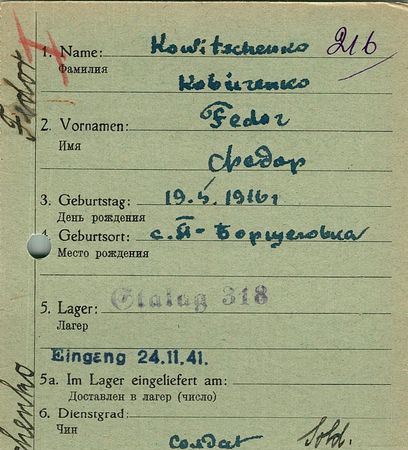 1. Name: Kowitschenko 216
Фамилия
2. Vornamen: Fedor
Имя Федор
3. Geburtstag: 19.5.1916 г
День рождения
4. Geburtsort: с.
Место рождения
5. Lager: Stalag 318
Лагер
Eingang 24.11.41.
5a. Im Lager eingeliefert am:
Доставлен в лагер (число)
6. Dienstgrad:
Чин
Soldat Sold.
Fedor
chenko